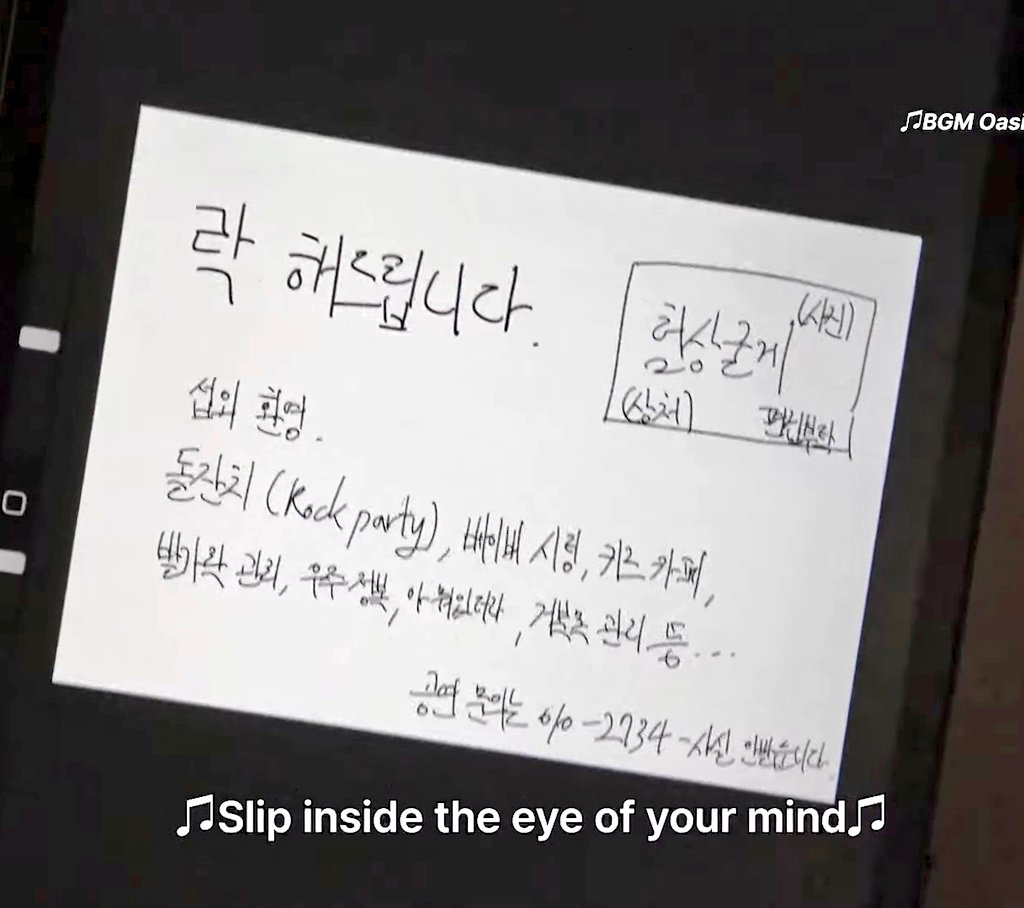 ♫BGM Oasi
락 해드립니다.
(사진)
험상굳게
(상처)
편집부탁
섭외 환영.
돌잔치 (Rock party), 베이비 시팅, 키즈 카페,
발가락 관리, 우주정복, 거북목 관리 등...
공연 문의는 010-2734-사실 안받습니다
♫Slip inside the eye of your mind♫